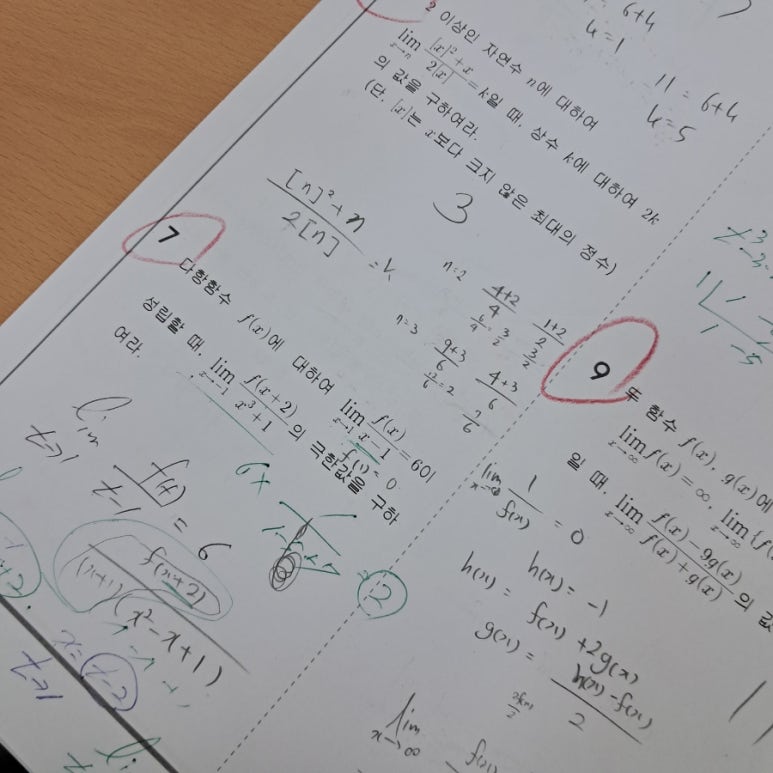 2 이상인 자연수 n에 대하여
lim x→n [x]²+x / 2[x] = k일 때, 상수 k에 대하여 2k
의 값을 구하여라.
(단, [x]는 x보다 크지 않은 최대의 정수)
6+4
k=1
11=6+4
k=5
3
[n]²+n / 2[n] = k
n=2 4+2 / 4
6/4 = 3/2
1+2 / 2
3/2
n=3 9+3 / 6
12/6 = 2
4+3 / 6
7/6
7
다항함수 f(x)에 대하여 lim x→1 f(x) / x-1 = 6이
성립할 때, lim x→-1 f(x+2) / x³+1 의 극한값을 구하
여라.
f(1)=0
lim t→1 f(t) / t-1 = 6
f(x+2) / (x+1)(x²-x+1)
x=t-2
t→1
6x
2
9
두 함수 f(x), g(x)에
lim x→∞ f(x)=∞, lim x→∞ {f(
일 때, lim x→∞ f(x)-9g(x) / f(x)+g(x) 의 값
lim x→∞ 1 / f(x) = 0
h(x)=-1
h(x)= f(x)+2g(x)
g(x)= h(x)-f(x) / 2
lim x→∞